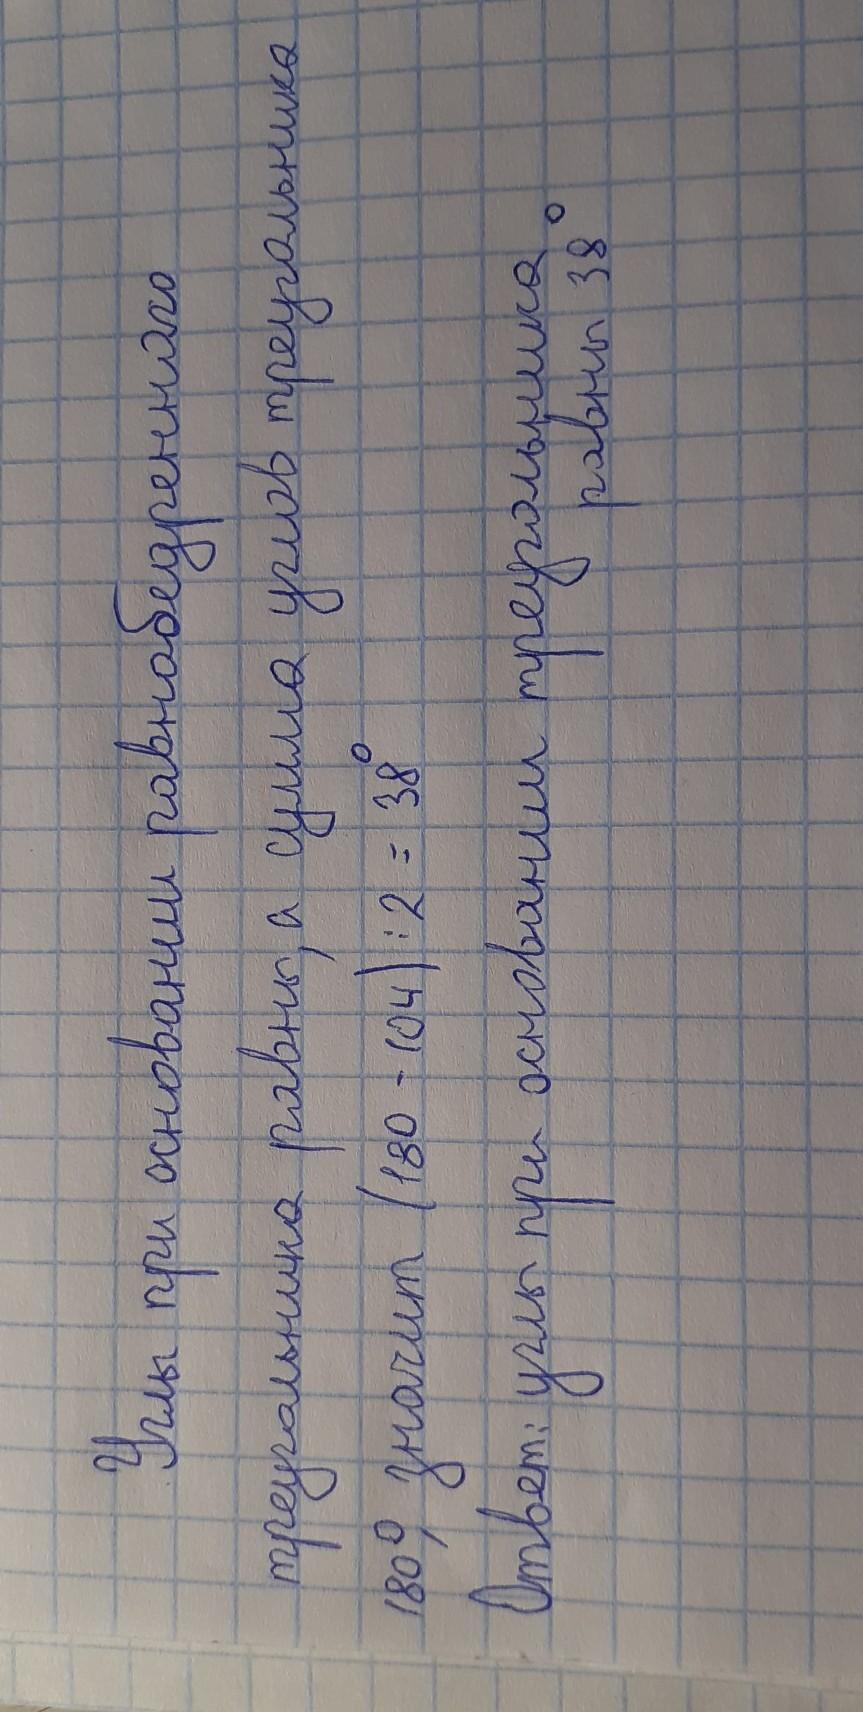 Углы при основании равнобедренного
треугольника равны, а сумма углов треугольника
180°, значит (180 - 104) : 2 = 38°
Ответ: углы при основании треугольника
равны 38°